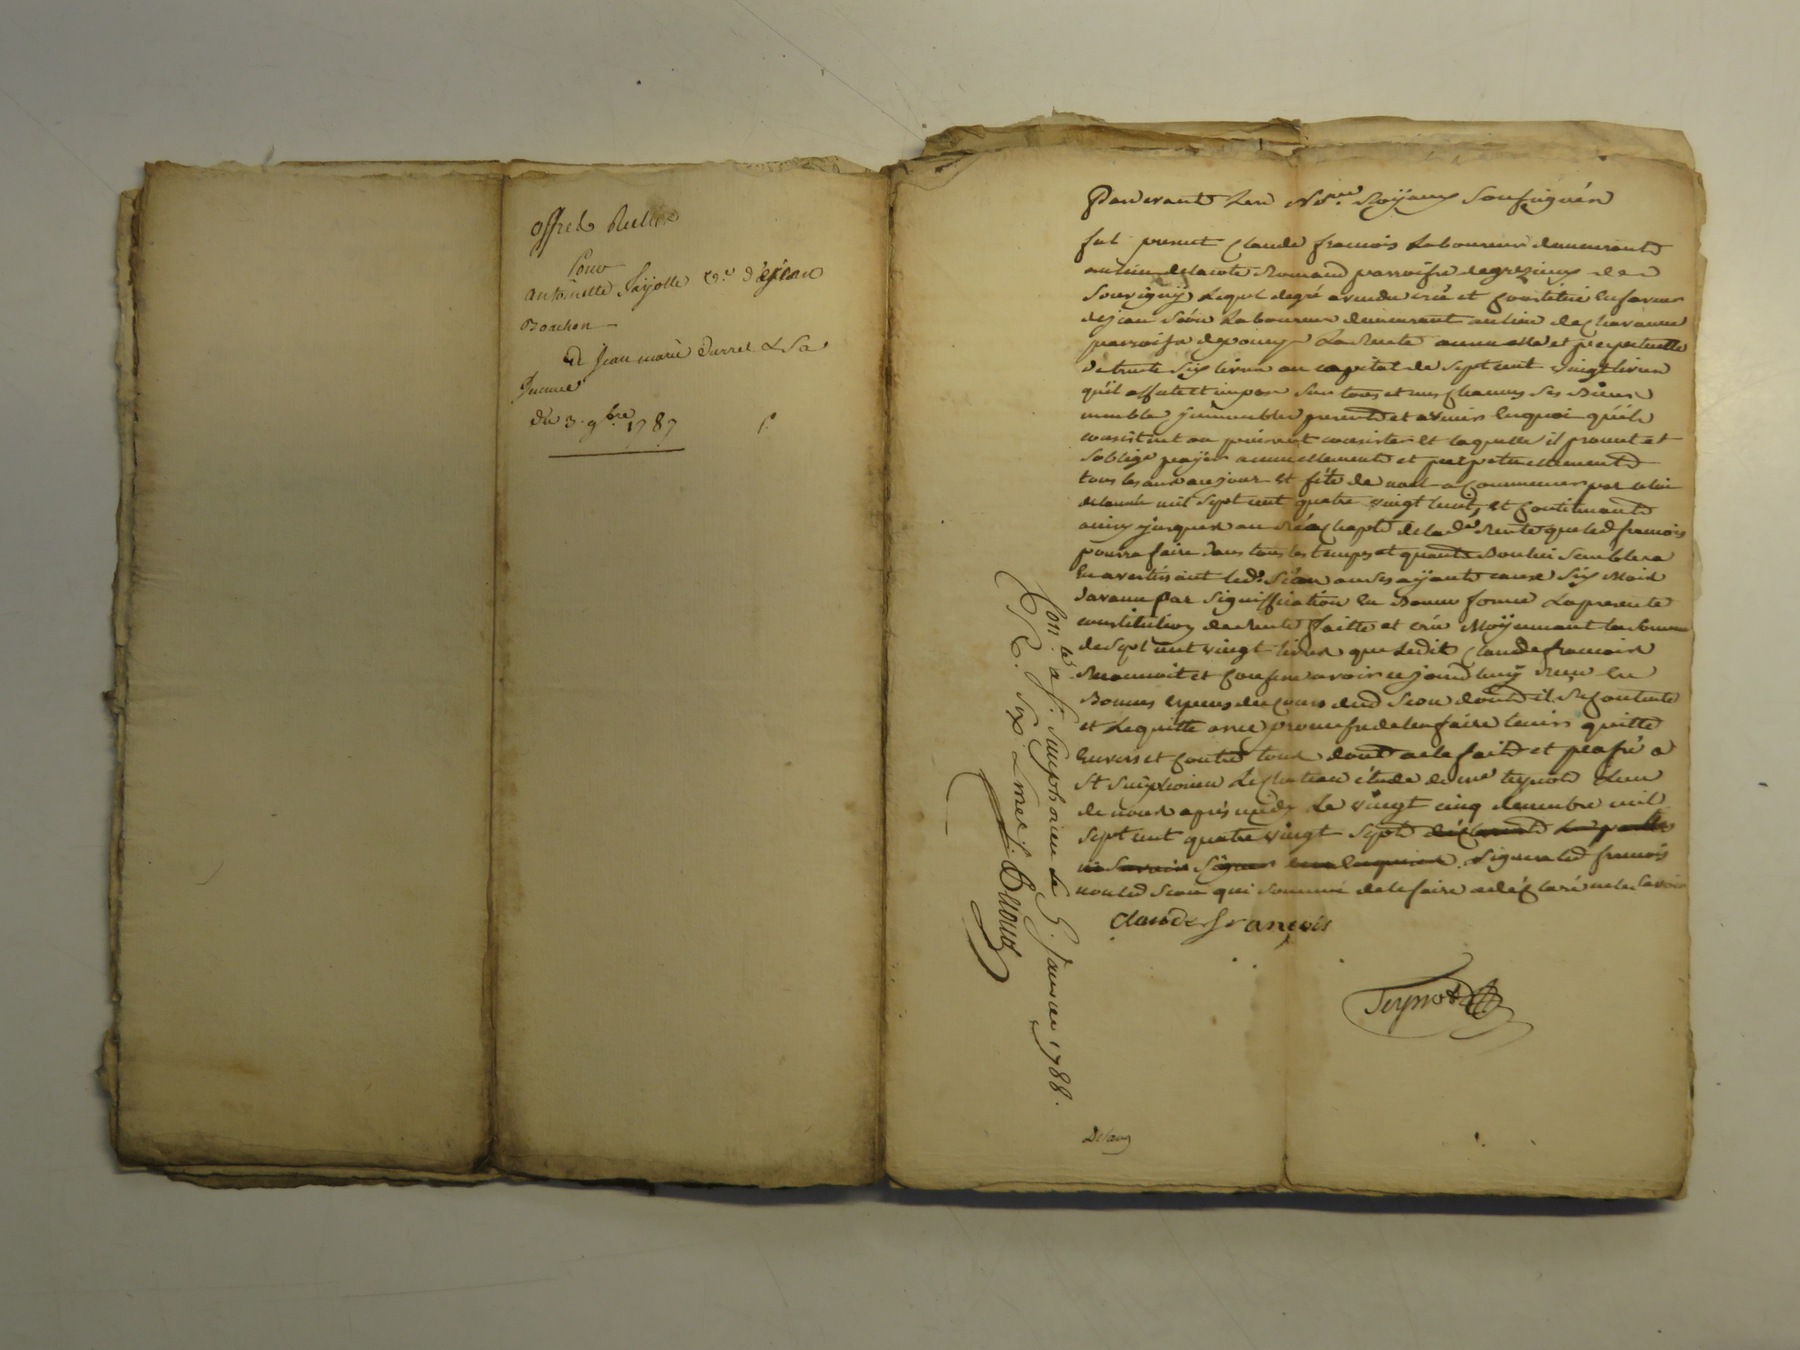 offre Reelle
Pour
antoinette Vve dejean
Bouchon
a Jean marie Durret & Sa
femme
du 3 9bre 1787
Pardevant Les Nres Royaux Soussignés
fut present Claude francois Laboureur demeurant
au lieu de lacote Romand parroisse de grezieux
Souvigny Lequel de gré a vendu crée et constitué en faveur
de jean Séon Laboureur demeurant au lieu de Chavanne
parroisse de pomey La Rente annuelle et perpetuelle
de trente Six livres au capital de sept cent vingt livres
qu'il affecte et impose Sur tous et uns chacuns Ses Biens
meubles immeubles presents et avenir En quoi qu'ils
consistent ou puissent consister Et laquelle il promet et
S'oblige payer annuellement et perpetuellement
tous les ans au jour Et fête de noel a commencer par celui
de lannée mil Sept cent quatre vingt huit, Et Continuant
ainsy jusques au Réachapt de lade Rente que led francois
pourra faire dans tous les temps et quand Bon lui Semblera
En avertissant led. Séon ou Ses ayants cause Six Mois
davance par Signiffication En Bonne forme La presente
constitution de Rente faitte et crée Moÿennant la Somme
de Sept cent vingt livres que Ledit Claude francois
Reconnoit et Confesse avoir cejourd'huy Reçu En
Bonnes especes du cours dud Seon dont il Se Contente
et Le quitte avec promesse de l'en faire tenir quitte
Envers et Contre tous dont acte fait et passé a
St Simphorien Le Chateau étude de me teynot L'un
de nous après midy Le vingt cinq decembre mil
Sept cent quatre vingt Sept déclarant Les parties
ne Savoir Signer Signera led francois
non led Seon qui Sommé de le faire a déclaré ne le Savoir
Claude françois
Teynot
Conlé a St. Simphorien Le 5. Janvier 1788.
R. Six